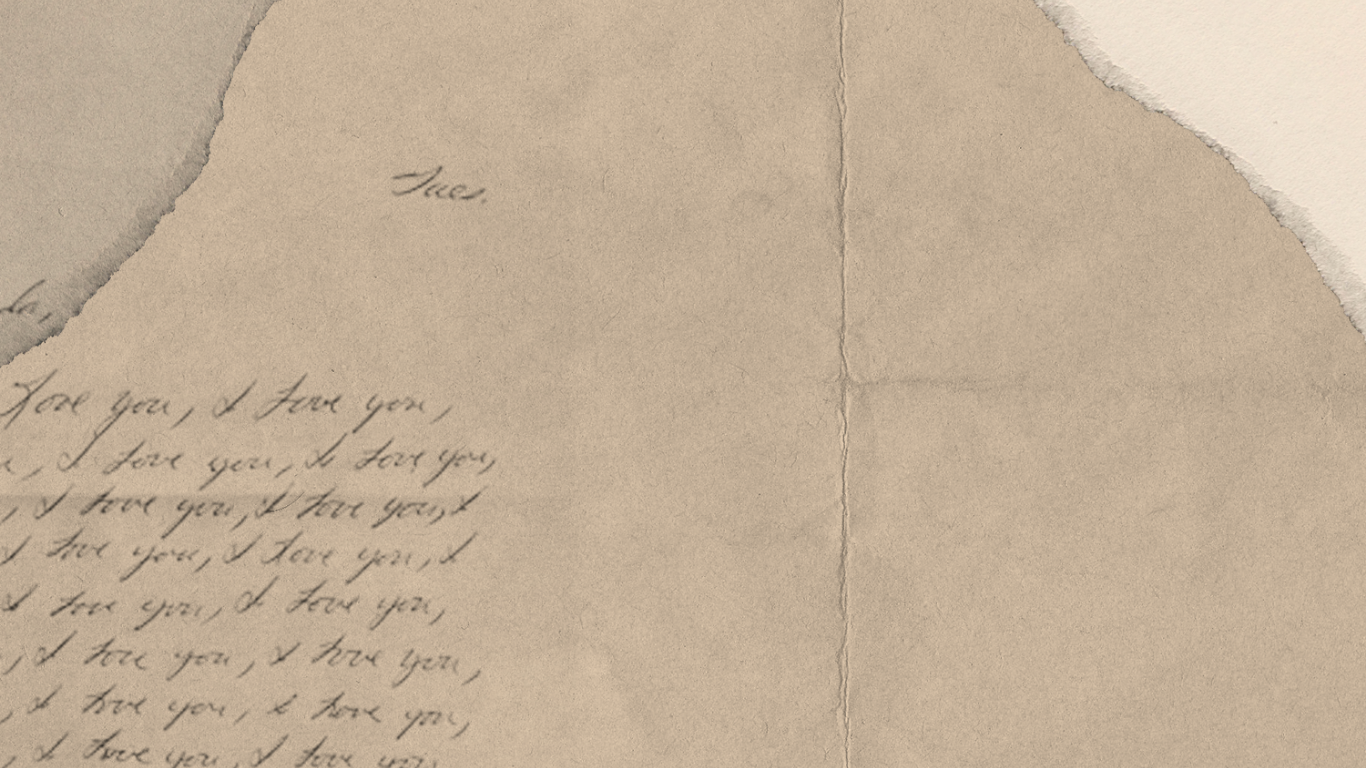 Tues.
la,
Love you, I love you,
, I love you, I love you,
, I love you, I love you, I
I love you, I love you, I
I love you, I love you,
, I love you, I love you,
, I love you, I love you,
, I love you, I love you,